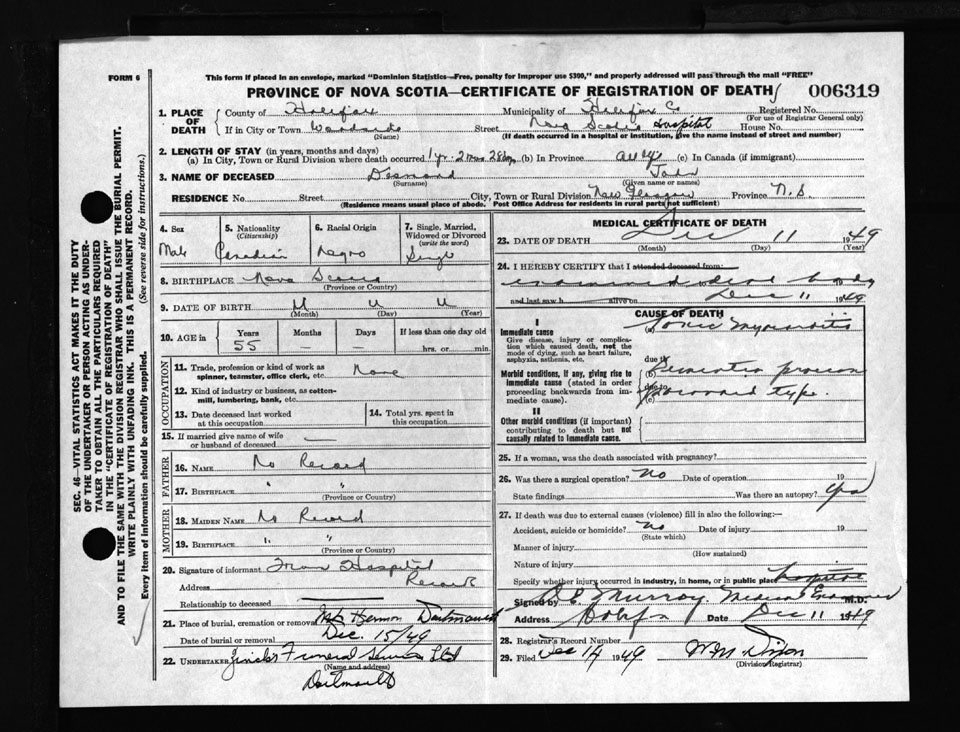 FORM 6
This form if placed in an envelope, marked "Dominion Statistics—Free, penalty for improper use $300," and properly addressed will pass through the mail "FREE"
PROVINCE OF NOVA SCOTIA—CERTIFICATE OF REGISTRATION OF DEATH 006319
1. PLACE OF DEATH County of Halifax Municipality of Halifax Co Registered No.
(For use of Registrar General only)
If in City or Town Woodside Street Nova Scotia Hospital House No.
(Name) (If death occurred in a hospital or institution, give the name instead of street and number)
2. LENGTH OF STAY (in years, months and days)
(a) In City, Town or Rural Division where death occurred 1 yr. 2 mos 28 days (b) In Province All life (c) In Canada (if immigrant)
3. NAME OF DECEASED Desmond John
(Surname) (Given name or names)
RESIDENCE No. Street City, Town or Rural Division New Glasgow Province N.S.
(Residence means usual place of abode. Post Office Address for residents in rural parts not sufficient)
4. Sex 5. Nationality (Citizenship) 6. Racial Origin 7. Single, Married, Widowed or Divorced (write the word)
Male Canadian Negro Single
8. BIRTHPLACE Nova Scotia
(Province or Country)
9. DATE OF BIRTH U U U
(Month) (Day) (Year)
10. AGE in Years Months Days If less than one day old
55 — — hrs. or min.
OCCUPATION
11. Trade, profession or kind of work as spinner, teamster, office clerk, etc. None
12. Kind of industry or business, as cotton-mill, lumbering, bank, etc.
13. Date deceased last worked at this occupation 14. Total yrs. spent in this occupation
15. If married give name of wife or husband of deceased
FATHER
16. NAME No Record
17. BIRTHPLACE " "
(Province or Country)
MOTHER
18. MAIDEN NAME No Record
19. BIRTHPLACE " "
(Province or Country)
20. Signature of informant From Hospital Records
Address
Relationship to deceased
21. Place of burial, cremation or removal Mt Hermon Dartmouth
Date of burial or removal Dec. 15/49
22. UNDERTAKER Funeral Service Ltd
(Name and address)
Dartmouth
MEDICAL CERTIFICATE OF DEATH
23. DATE OF DEATH Dec 11 1949
(Month) (Day) (Year)
24. I HEREBY CERTIFY that I attended deceased from:
examined dead body 19
and last saw h alive on Dec 11 1949
CAUSE OF DEATH
I
Immediate cause (a) Toxic Myocarditis
Give disease, injury or complication which caused death, not the mode of dying, such as heart failure, asphyxia, asthenia, etc.
due to
Morbid conditions, if any, giving rise to immediate cause (stated in order proceeding backwards from immediate cause). (b) Dementia praecox
due to
(c) paranoid type.
II
Other morbid conditions (if important) contributing to death but not causally related to immediate cause.
25. If a woman, was the death associated with pregnancy?
26. Was there a surgical operation? No Date of operation 19
State findings Was there an autopsy? Yes
27. If death was due to external causes (violence) fill in also the following:—
Accident, suicide or homicide? No Date of injury 19
(State which)
Manner of injury
(How sustained)
Nature of injury
Specify whether injury occurred in industry, in home, or in public place
Signed by Murray. Medical Examiner M.D.
Address Halifax Date Dec 11 1949
28. Registrar's Record Number
29. Filed Dec 14 1949 W M Dixon
(Division Registrar)
SEC. 46—VITAL STATISTICS ACT MAKES IT THE DUTY
OF THE UNDERTAKER OR PERSON ACTING AS UNDER-
TAKER TO OBTAIN ALL THE PARTICULARS REQUIRED
IN THE "CERTIFICATE OF REGISTRATION OF DEATH"
AND TO FILE THE SAME WITH THE DIVISION REGISTRAR WHO SHALL ISSUE THE BURIAL PERMIT.
WRITE PLAINLY WITH UNFADING INK. THIS IS A PERMANENT RECORD.
Every item of information should be carefully supplied. (See reverse side for instructions.)